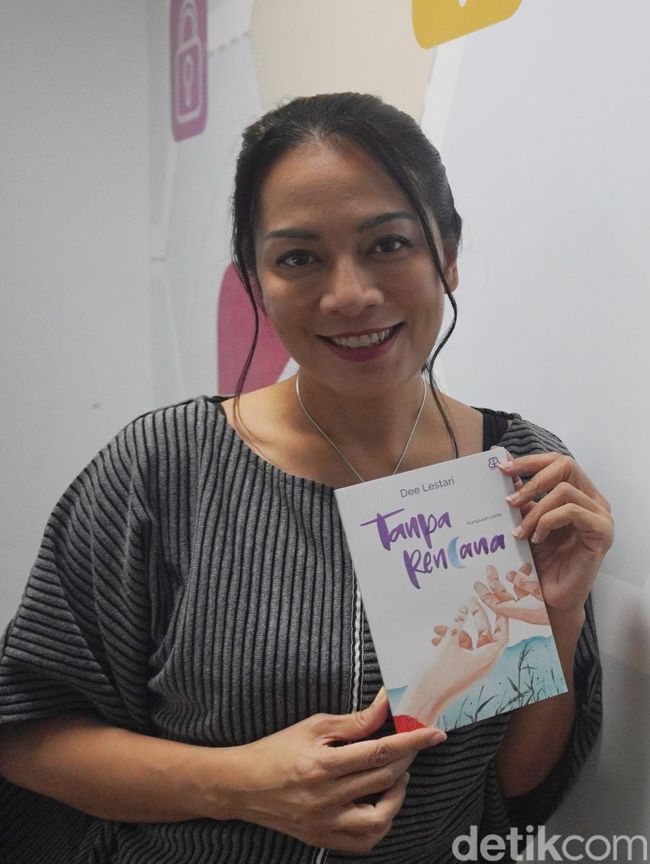 Dee Lestari
Kumpulan Cerita
Tanpa
Rencana
detikcom